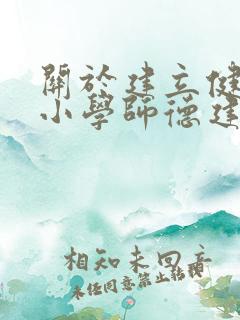 關於建立健
小學師德建
相知未回音
未经同意禁止转载